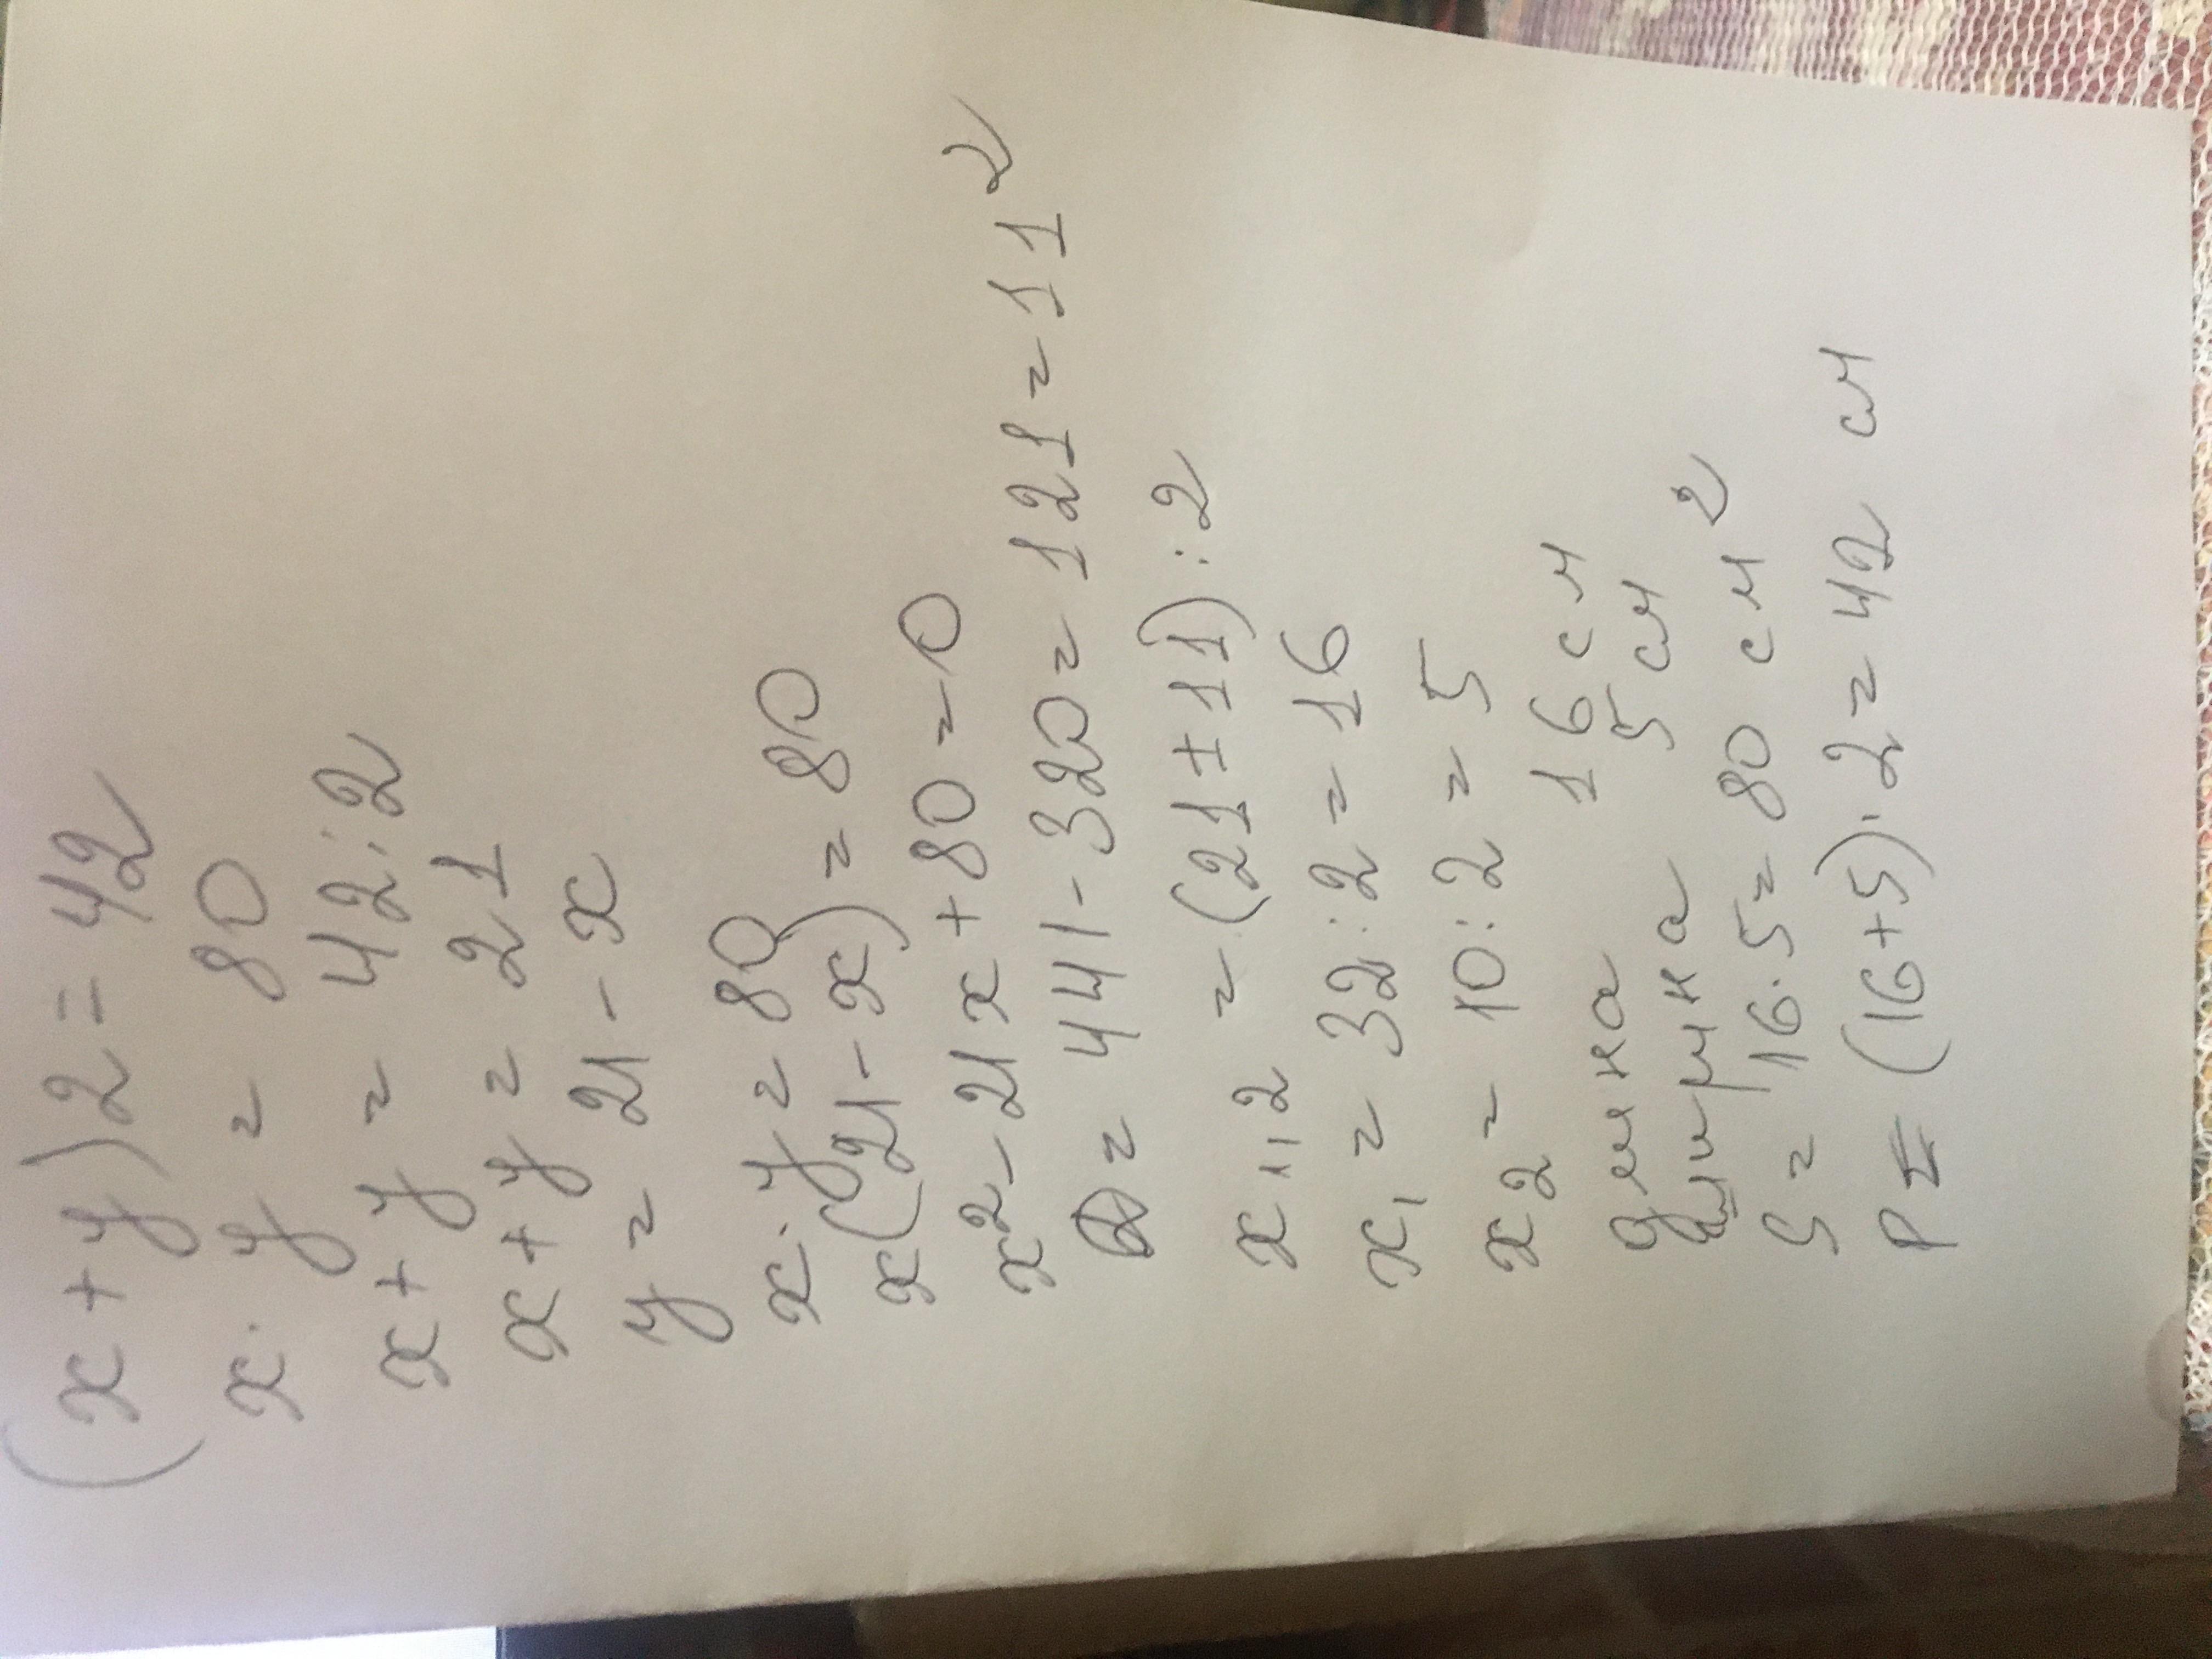 (x + y) 2 = 42
x · y = 80
x + y = 42 : 2
x + y = 21
y = 21 - x
x · y = 80
x(21 - x) = 80
x² - 21x + 80 = 0
D = 441 - 320 = 121 = 11²
x₁,₂ = (21 ± 11) : 2
x₁ = 32 : 2 = 16
x₂ = 10 : 2 = 5
длина 16 см
ширина 5 см
S = 16 · 5 = 80 см²
P = (16 + 5) · 2 = 42 см